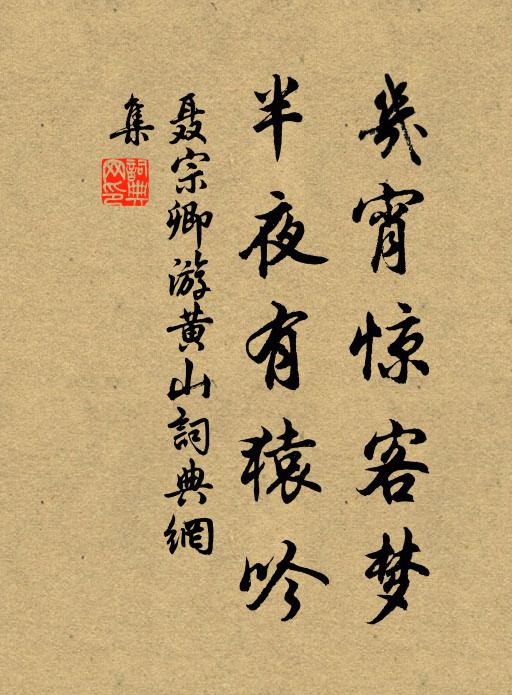 幾宵惊客梦
半夜有猿吟
聂宗卿游黄山詞典網
集
詞典网印